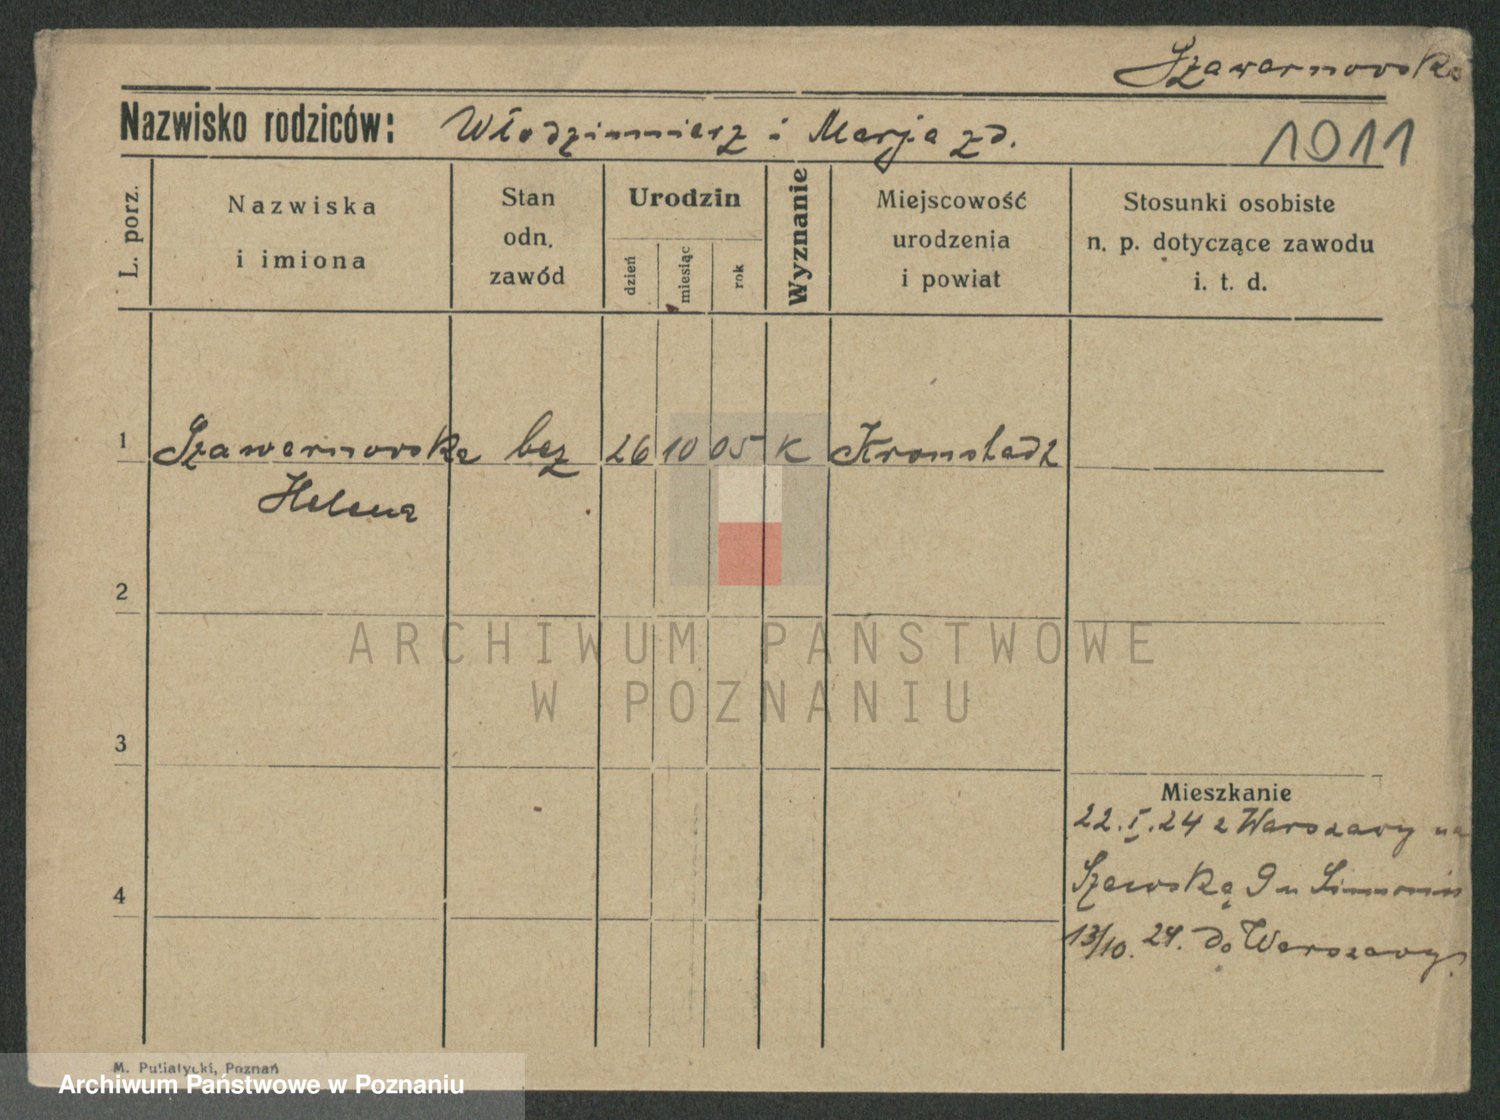 Szawarnowska
Nazwisko rodziców: Włodzimierz i Marja zd.
1911
L. porz.
Nazwiska
i imiona
Stan
odn.
zawód
Urodzin
dzień
miesiąc
rok
Wyznanie
Miejscowość
urodzenia
i powiat
Stosunki osobiste
n. p. dotyczące zawodu
i. t. d.
1 Szawernowska bez 26 10 05 K Kronstadt
Helena
2
3
4
Mieszkanie
22. I. 24 z Warszawy na
Szewską 9 u
13/10. 24. do Warszawy.
ARCHIWUM PAŃSTWOWE
W POZNANIU
M. Putiatycki, Poznań
Archiwum Państwowe w Poznaniu